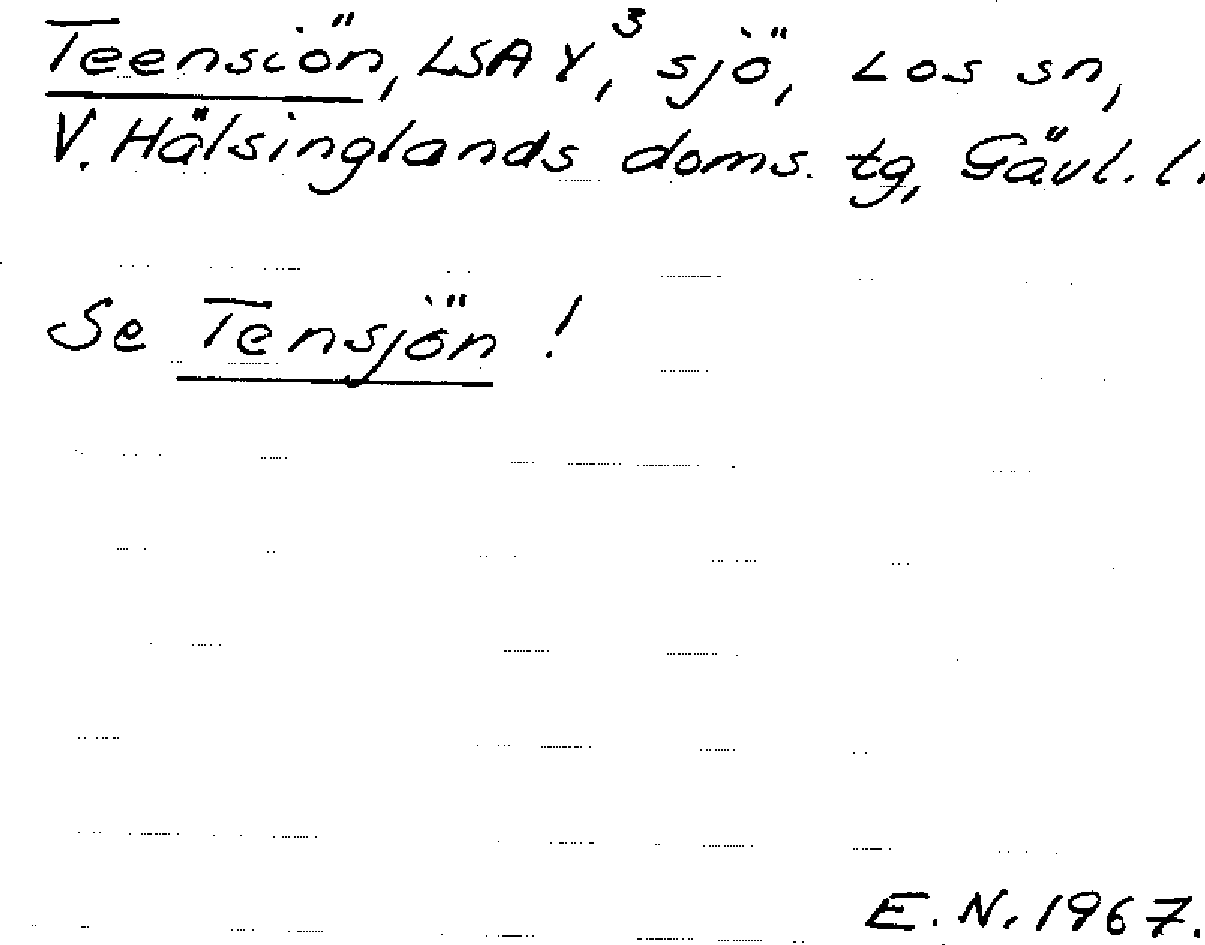 Teensiön, LSA Y,³ sjö, Los sn,
V. Hälsinglands doms. tg, Gävl. l.
Se Tensjön !
E. N. 1967.